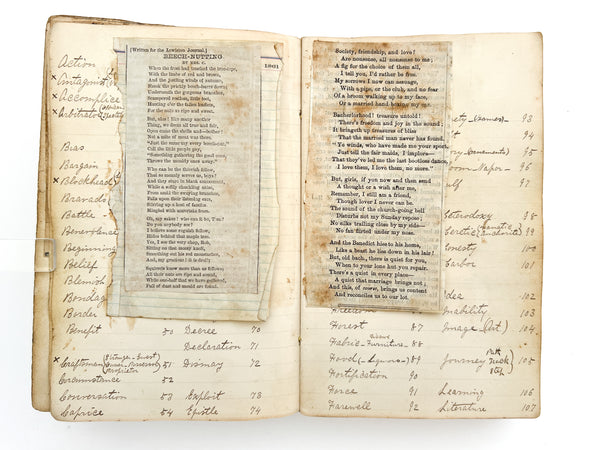 Action
Antagonist
Accomplice
Arbitrator
Bias
Bargain
Blockhead
Bravado
Battle
Benevolence
Beginning
Belief
Blemish
Bondage
Border
Benefit 50 Decree 70
Declaration 71
Craftsman 51 Dismay 72
Circumstance 52
Conversation 53 Exploit 73
Caprice 54 Epistle 74
[Written for the Lewiston Journal.]
BEECH-NUTTING
BY MRS. C.
1861
When the frost had touched the tree-tops,
With the tints of red and brown,
And the jostling winds of autumn,
Shook the prickly beech-burrs down;
Underneath the gorgeous branches,
Scampered restless, little feet,
Hunting o'er the fallen leaflets,
For the nuts so ripe and sweet.
But, alas! like many another
Thing, we deem all true and fair,
Open came the shells and—bother!
Not a mite of meat was there.
"Must the same way every beech-nut,"
Call the little people gay,
"Something gathering the good ones,
Throws the meanly ones away."
Who can be the thievish fellow,
That so meanly serves us, boys?
And they stare in blank amazement,
While a wily chuckling noise,
From amid the swaying branches,
Falls upon their listening ears,
Stirring up a host of fancies
Mingled with uncertain fears.
Oh, my sakes! who can it be, Tom?
Do you anybody see?
I believe some squirrel fellow,
Hides behind that maple tree.
Yes, I see the very chap, Rob,
Sitting on that mossy knoll,
Something eat his red moustaches,
And, my gracious! he is droll!
Squirrels knew more than us fellows;
All their nuts are ripe and sound,
While one-half that we have gathered,
Full of dust and mould are found.
Society, friendship, and love!
Are nonsense, all nonsense to me;
A fig for the choice of them all,
I tell you, I'd rather be free.
My sorrows I now can assuage,
With a pipe, or the club, and no fear
Of a broom walking up to my face,
Or a married hand boxing my ear.
Bachelorhood! treasure untold!
There's freedom and joy in the sound;
It bringeth up treasures of bliss
That the married man never has found.
Ye winds, who have made me your sport,
Just tell the fair maids, I implore—
That they've led me the last bootless dance,
I love them, I love them, no more."
But, girls, if you now and then send
A thought or a wish after me,
Remember, I still am a friend,
Though lover I never can be.
The sound of the church-going bell
Disturbs not my Sunday repose;
No silks trailing close by my side—
No fan flirted under my nose.
And the Benedict hies to his home,
Like a beast he lies down in his lair!
But, old bach., there is quiet for you,
When to your long hut you repair.
There's a quiet in every place—
A quiet that marriage brings not;
And this, of never, brings us content
And reconciles us to our lot.
93
94
95
96
Heterodoxy 98
99
Honesty 100
Harbor 101
Idea 102
Freedom Inability 103
Forest 87 Image (Art) 104
Fabric-Furniture 88
Hood 89 Journey 105
Fortification 90
Force 91 Learning 106
Farewell 92 Literature 107